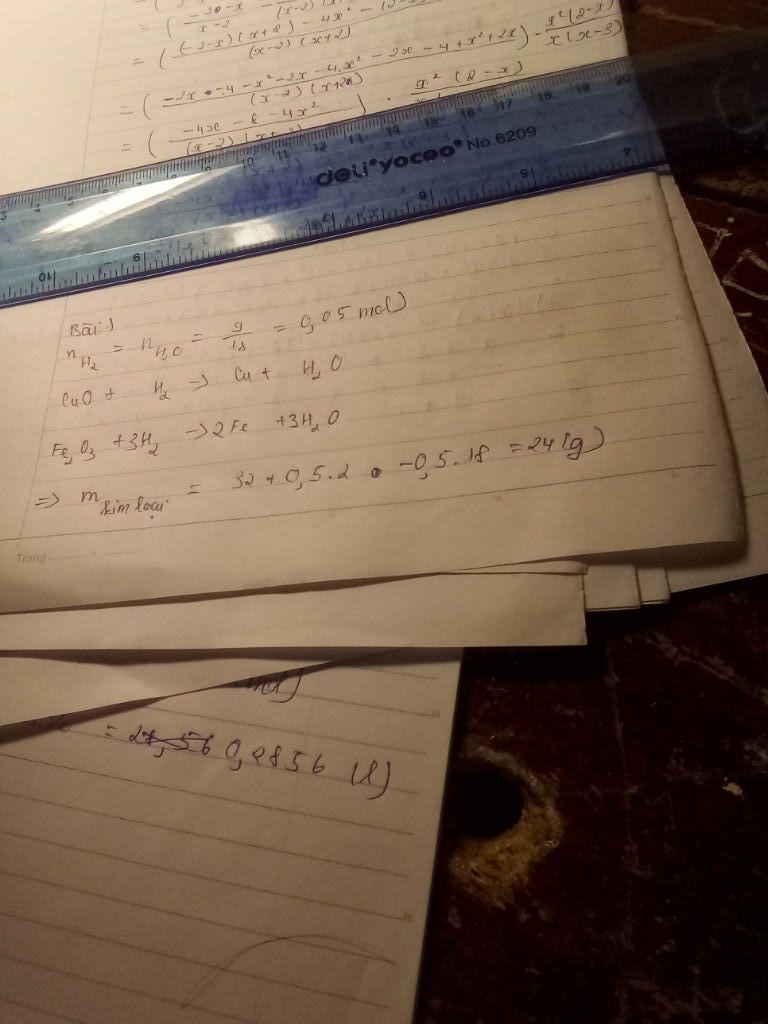 = ( (-2-x)(x+2) - 4x² - (2-x)
(x-2)(x+2)
= ( -2x - 4 - x² - 2x - 4x² - 2x - 4 + x² + 2x ) · x²(2-x)
(x-2)(x+2) x(x-3)
= ( -4x - 8 - 4x² ) · x² (2-x)
(x-2)(x+2)
deli yocoo No.6209
Bài 1
n H₂ = n H₂O = 9/18 = 0,05 mol)
CuO + H₂ → Cu + H₂O
Fe₂O₃ + 3H₂ → 2Fe + 3H₂O
=> m kim loại = 32 + 0,5.2 - 0,5.18 = 24 (g)
Trang
= 0,2856 (l)